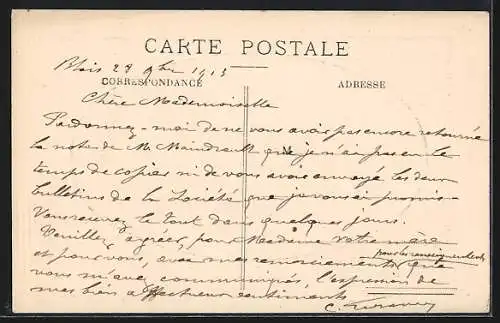 CARTE POSTALE
Blois 28 9bre 1913
CORRESPONDANCE
ADRESSE
Chère Mademoiselle
Pardonnez-moi de ne vous avoir pas encore retourné
la note de M. que je n'ai pas eu le
temps de copier ni de vous avoir envoyé les deux
bulletins de la Société que je vous ai promis.
Vous recevrez le tout dans quelques jours.
Veuillez agréer, pour Madame votre mère
et pour vous, avec mes remerciements
pour les renseignements que
vous m'avez communiqués, l'expression de
mes bien affectueux sentiments